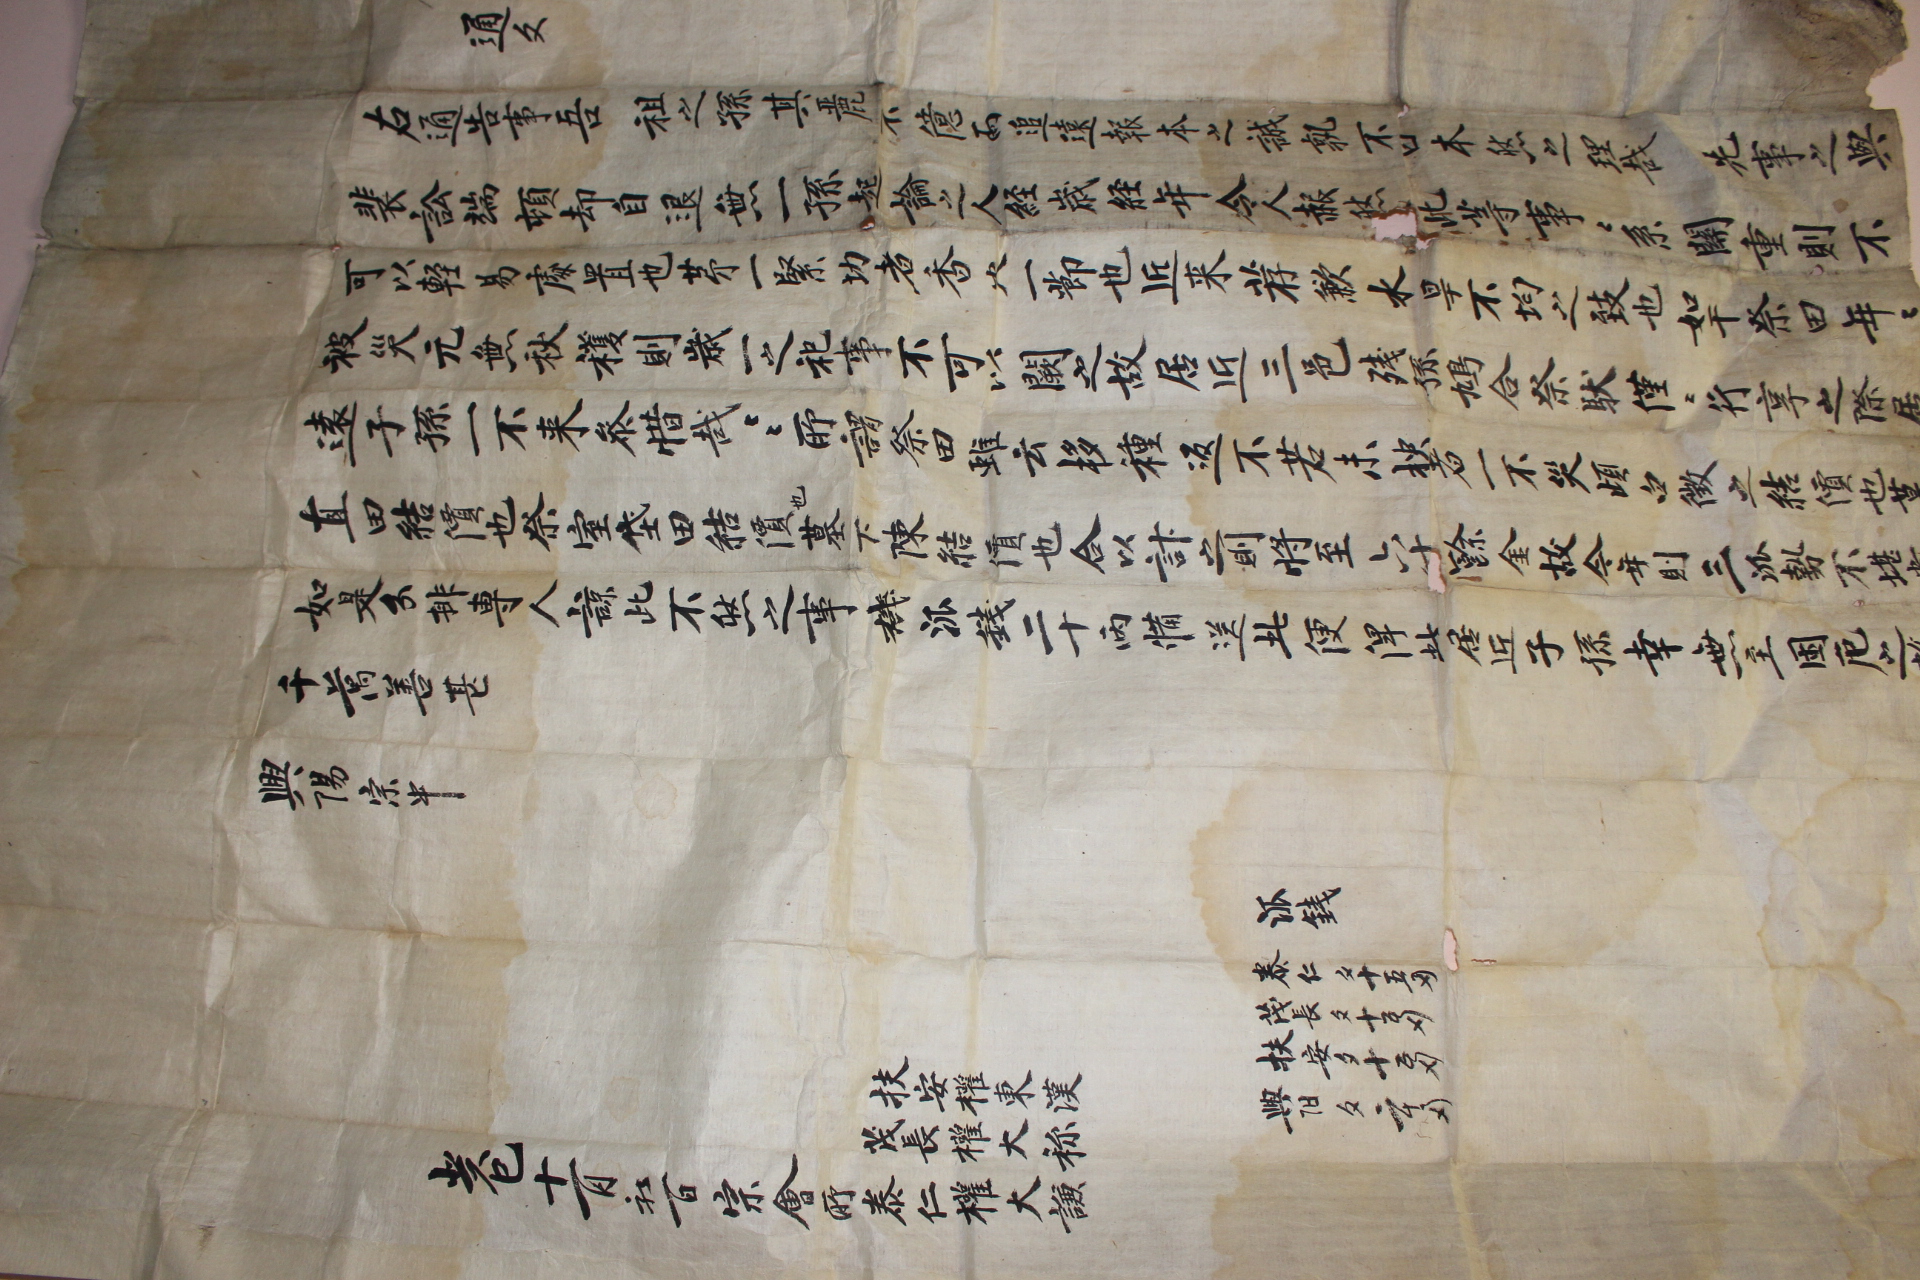 通文
右通告事吾 祖之孫其麗不億而追遠報本之誠孰不曰本然之理哉 先事之與
裴訟端頓却自退無一孫起論之人経歳経年令人赧然此等事〻系關重則不
可以軽易處置也苐一緊切者香火一節也近来荐歉水旱不均之致也如干祭田年〻
被災元無秋穫則歳一之祀事不可以闕之故居近三邑残孫鳩合祭狀僅〻行享之際居
遠子孫一不来參惜哉〻〻所謂祭田雖云移種返不若未移者一不災頉白徵之結價也墓
直田結價也祭室垈田結價也墓下陳結價也合以計之則將至六十餘金故今年則三泒勢不堪
如是分排專人諒此不然之事機泒錢二十两備送此便俾此居近子孫幸無至困厄之
千萬善甚
興陽宗中
癸巳十一月初一日宗會所泰仁權大謙
茂長權大称
扶安權東漢
泒錢
泰仁 夕十五両
茂長夕十五両
扶安夕十五両
興阳夕二十両